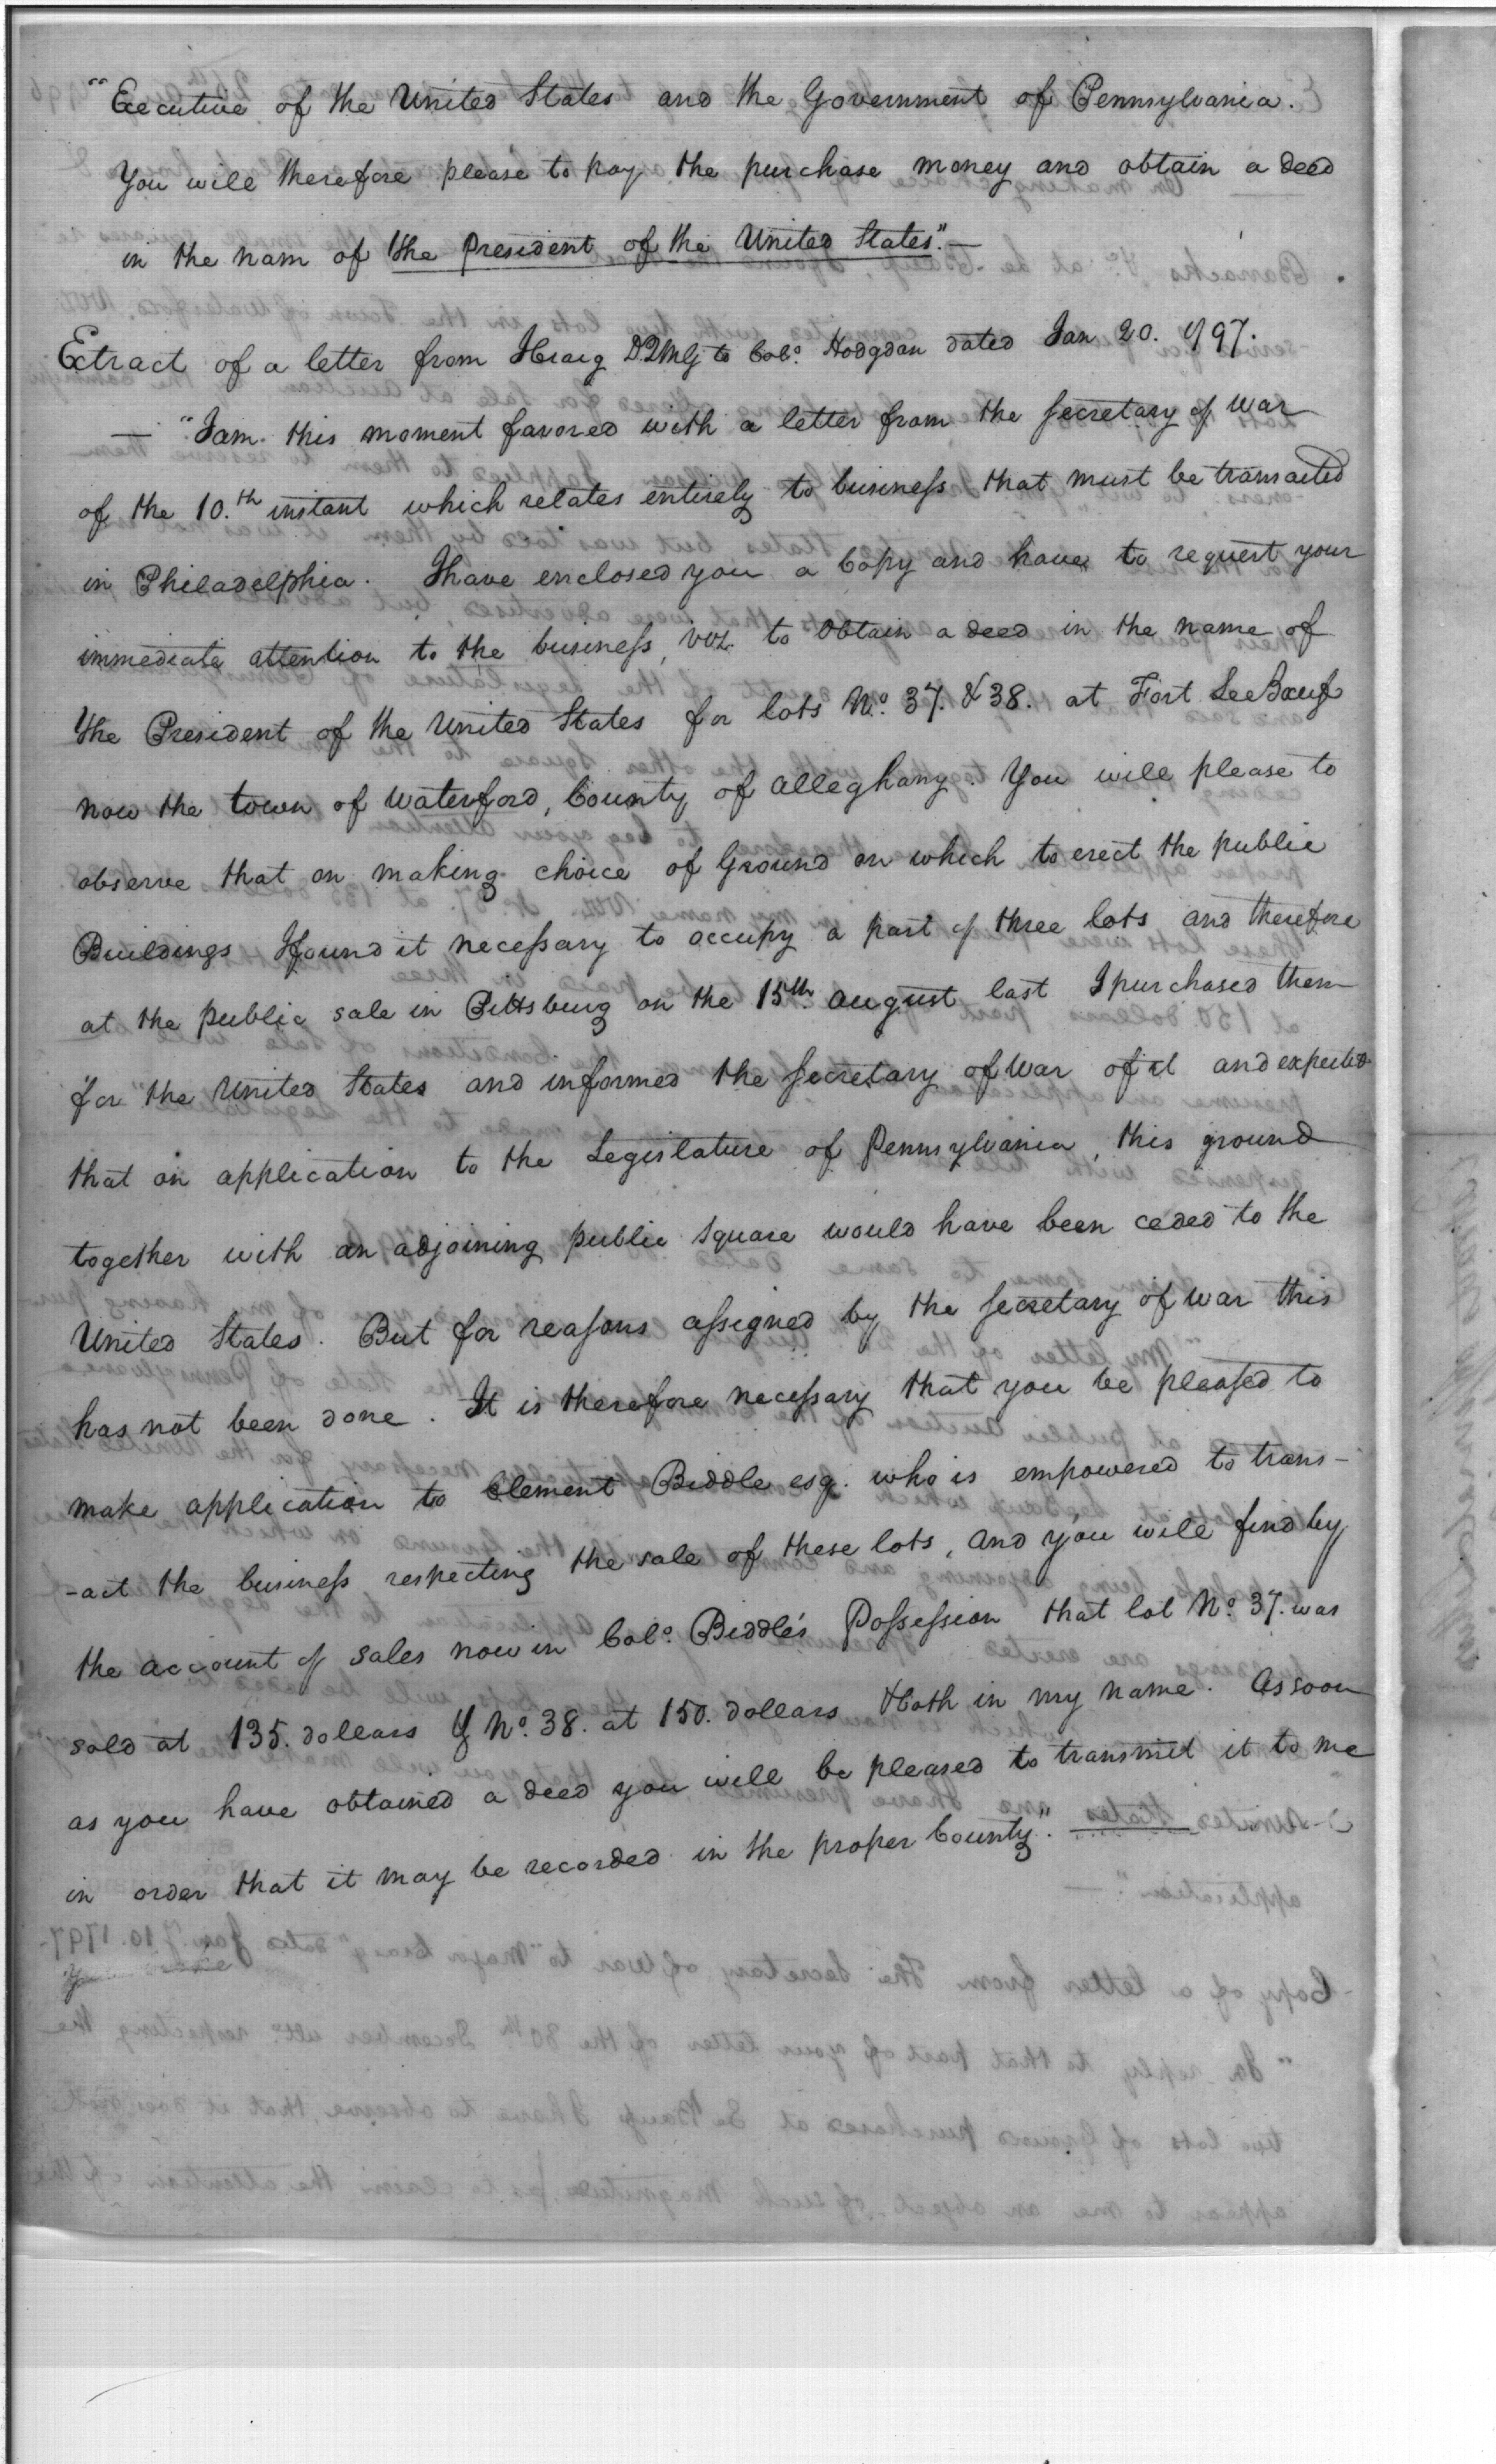 "Executive of the United States and the Government of Pennsylvania.
You will therefore please to pay the purchase money and obtain a deed
in the nam of the President of the United States".—
Extract of a letter from I Craig D.Q.M.G to Colo. Hodgdan dated Jan 20. 1797.
— "I am this moment favored with a letter from the Secretary of War
of the 10.th instant which relates entirely to business that must be transacted
in Philadelphia. I have enclosed you a Copy and have to request your
immediate attention to the business, viz. to obtain a deed in the name of
the President of the United States for lots No. 37. & 38. at Fort LeBœuf
now the town of Waterford, County of Alleghany. You will please to
observe that on making choice of Ground on which to erect the public
Buildings I found it necessary to occupy a part of three lots and therefore
at the public sale in Pittsburg on the 15th. August last I purchased them
for the United States and informed the Secretary of War of it and expected
that on application to the Legislature of Pennsylvania, this ground
together with an adjoining public square would have been ceded to the
United States. But for reasons assigned by the Secretary of War this
has not been done. It is therefore necessary that you be pleased to
make application to Clement Biddle esq. who is empowered to trans-
-act the business respecting the sale of these lots, and you will find by
the account of sales now in Colo. Biddle's Possession that lot No. 37. was
sold at 135. dollars & No. 38. at 150. dollars & both in my name. As soon
as you have obtained a deed you will be pleased to transmit it to me
in order that it may be recorded in the proper County".